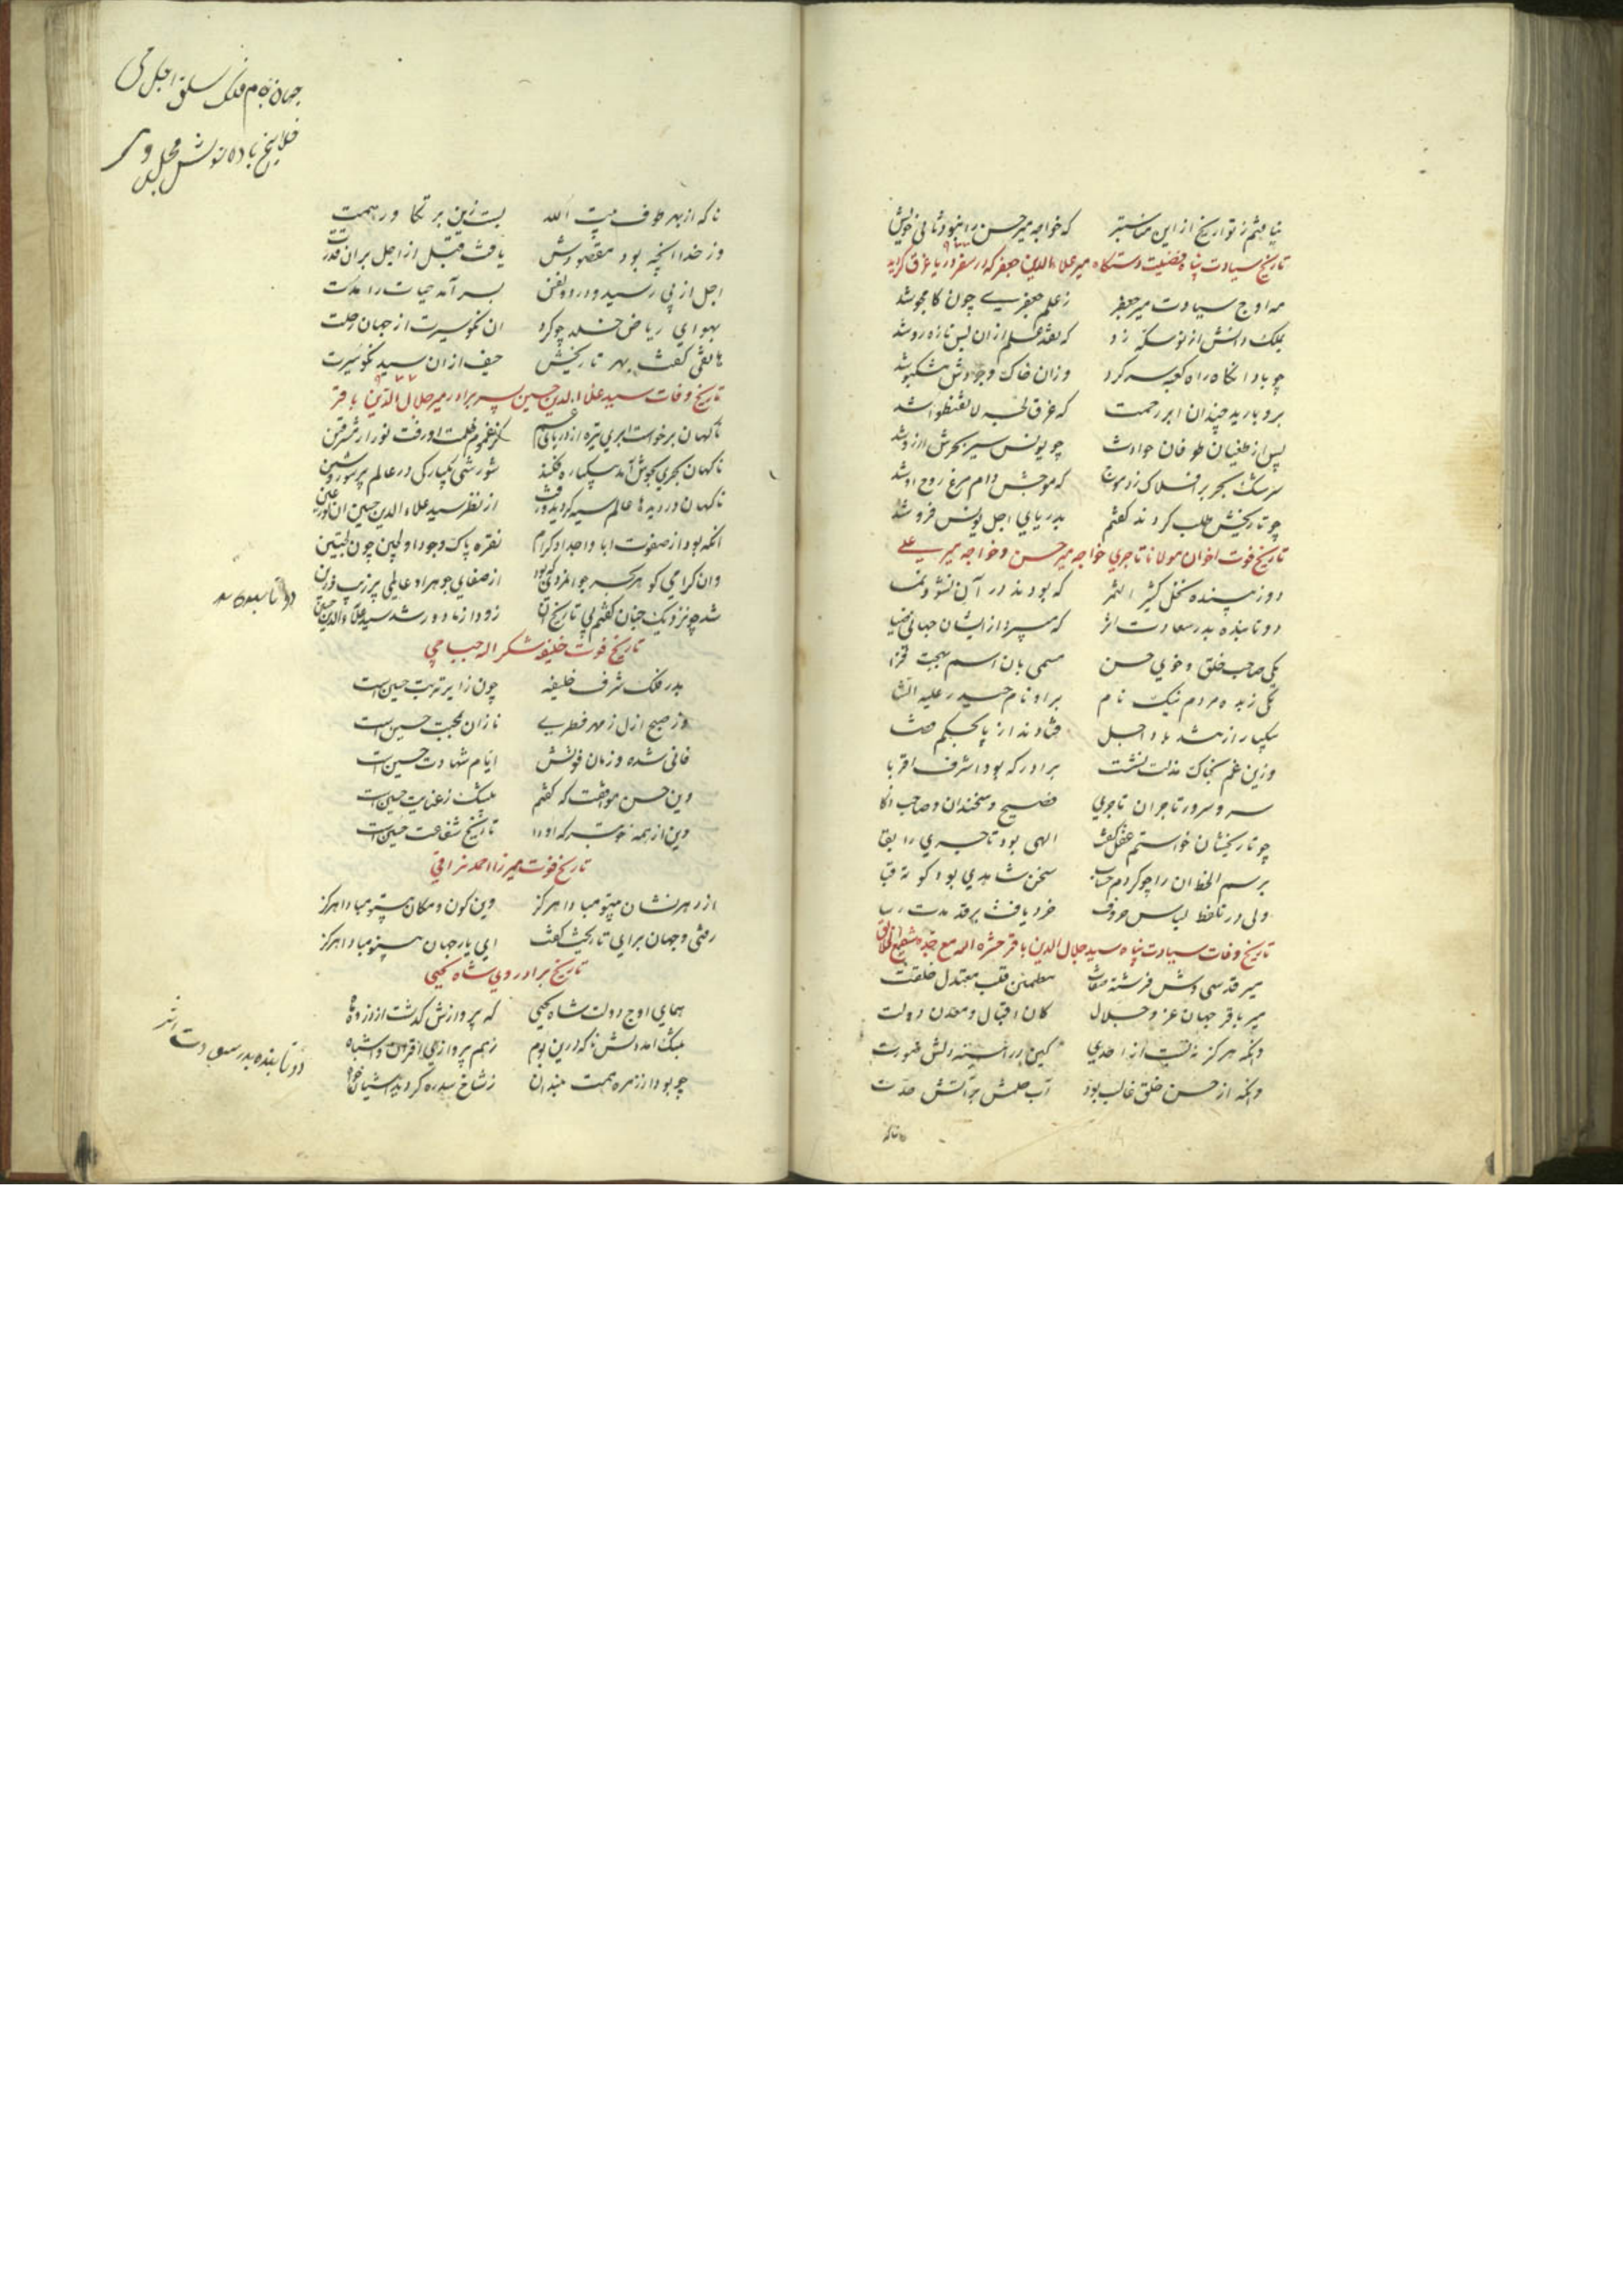 نیافتم ز تواریخ از این مناسبتر که خواجه میرحسن را نبود ثانی خویش
تاریخ سیادت پناه فضیلت دستگاه میر علاء الدین جعفر که در سفر دریا غرق گردید
مه اوج سیادت میر جعفر ز علم جعفری چون کامجو شد
بملک دانش از نو سکه زد که نقد علم ازان بس تازه رو شد
چو باد انگاه راه کعبه سر کرد وزان خاک وجودش مشکبو شد
برو بارید چندان ابر رحمت که غرق لجه لا تقنطوا شد
پس از طغیان طوفان حوادث چو یونس سیر بحرش ارزو شد
سرشک بحر بر افلاک زد موج که موجش دام مرغ روح او شد
چو تاریخش طلب کردند گفتم بدریای اجل یونس فرو شد
تاریخ فوت اخوان مولانا تاجری خواجه میرحسن و خواجه میر علی
دو زیبنده نخل کثیر الثمر که بودند در آن نشو و نما
دو تابنده بدر سعادت اثر که میبرد از ایشان جهانی ضیا
یکی صاحب خلق و خوی حسن مسمی بان اسم بهجت فزا
یکی زبده مردم نیک نام برادر نام حیدر علیه الثنا
بیکبار از تند باد اجل فتادند از پا بحکم قضا
وزین غم بخاک مذلت نشست برادر که بود اشرف اقربا
سر و سرور تاجران تاجری فصیح و سخندان و صاحب ذکا
چو تاریخشان خواستم عقل گفت الهی بود تاجری را بقا
برسم الخط ان را چو کردم حساب سخن شاهدی بود کوته قبا
ولی در تلفظ لباس حروف خرد یافت بر قد مدت رسا
تاریخ وفات سیادت پناه سید جلال الدین باقر حشره الله مع جده شفیع الخلایق
میر قدسی وش فرشته صفات مطمئن قلب معتدل خلقت
میر باقر جهان عز و جلال کان اقبال و معدن دولت
وانکه هرگز نه بست از احدی کین در آیینه دلش صورت
وانکه از حسن خلق غالب بود آب حلمش بر آتش حدت
ناکه
جهان بزم فلک ساقی اجل می
خلایق باده نوش مجلس وی
ناکه از بهر طوف بیت الله بست زین بر تکاور همت
وز خدا انچه بود مقصودش یافت قبل از اجل بران قدرت
اجل از پی رسید و در دو نفس بسر آمد حیات را مدت
بهوای ریاض خلد چو کرد ان نکو سیرت از جهان رحلت
هاتفی گفت بهر تاریخش حیف ازان سید نکو سیرت
تاریخ وفات سید علاء الدین حسین پسر برادر میر جلال الدین باقر
ناگهان برخواست ابری تیره از دریای غم کز غموم ظلمت او رفت نور از شرقین
ناگهان بحری بجوش آمد که یکباره فکند شورشی یکبارگی در عالم پر شور و شین
ناگهان در دیدها عالم سیه گردید و رفت از نظر سید علاء الدین حسین ان نور عین
انکه بود از صفوت ابا و اجداد کرام نقره پاک وجود او لجین چون لجین
وان گرامی گوهر از صفای جوهر او عالمی پر زیب و زین
شد چو نزدیک جنان گفتم پی تاریخ آن زود از ما دور شد سید علاء الدین حسین
تاریخ فوت خلیفه شکر اله جیبامچی
بدر فلک شرف خلیفه چون زایر تربت حسین است
وز صبح ازل ز مهر فطری نازان بمحبت حسین است
فانی شده و زمان فوتش ایام شهادت حسین است
وین حسن موافقت که گفتم بیشک ز عنایت حسین است
وین از همه خوبتر که او را تاریخ شفاعت حسین است
تاریخ فوت میرزا احمد نراقی
از دهر نشان بیتو مبادا هرگز وین کون و مکان بیتو مبادا هرگز
رفتی و جهان برای تاریخت گفت ای یار جهان بیتو مبادا هرگز
تاریخ برادر ولی شاه یحیی
همای اوج دولت شاه یحیی که پروازش گذشت از
بتنگ امد دلش ناگه درین بوم ز هم پروازی اقران و اشباه
چو بود از زمره همت بلندان ز شاخ سدره گردید اشیان
دو تابنده بدر سعادت اثر